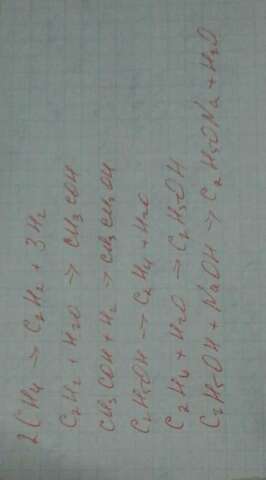 2CH4 → C2H2 + 3H2
C2H2 + H2O → CH3COH
CH3COH + H2 → CH3CH2OH
C2H5OH → C2H4 + H2O
C2H4 + H2O → C2H5OH
C2H5OH + NaOH → C2H5ONa + H2O